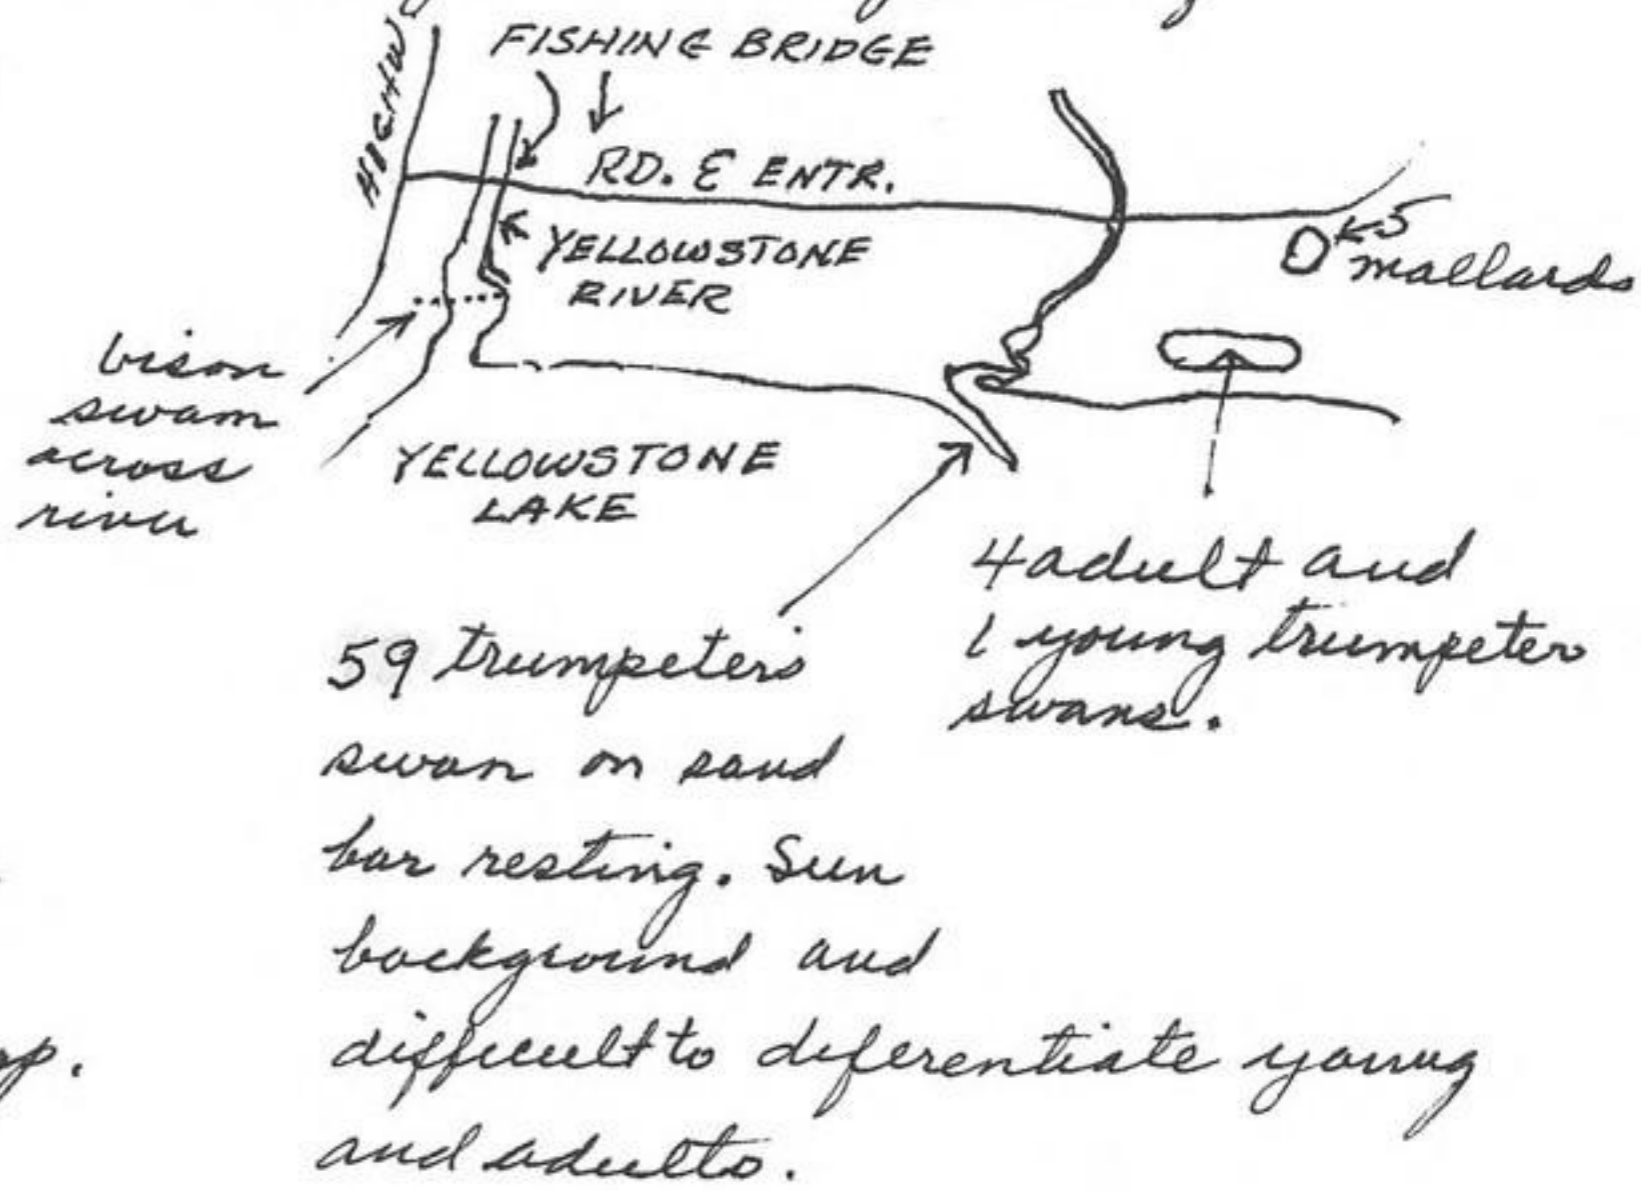 FISHING BRIDGE
HIGHW
RD. & ENTR.
YELLOWSTONE
RIVER
5
mallards
bison
swam
across
river
YELLOWSTONE
LAKE
4 adult and
1 young trumpeter
swans.
59 trumpeters
swan on sand
bar resting. Sun
background and
difficult to diferentiate young
and adults.